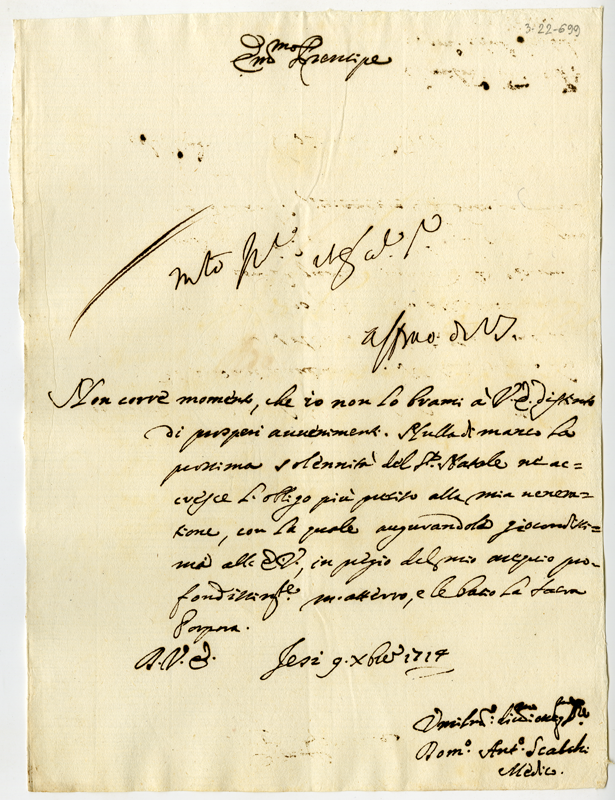 3-22-699
Em̃o Prencipe
Non corre momento, che io non lo brami à V.E. distinto
di prosperi auuenimenti. Nulla di manco la
prossima solennità del S. Natale ne ac=
cresce l'obligo più preciso alla mia venera=
tione, con la quale augurandola giocondissi=
ma all' E.V., in pegio del mio ossequio pro=
fondissim.te m'atterro, e le bacio la Sacra
Porpora.
D.V.E. Jesi 9. Xbre 1714
Dom.o Ant.o Scalchi
Medico.